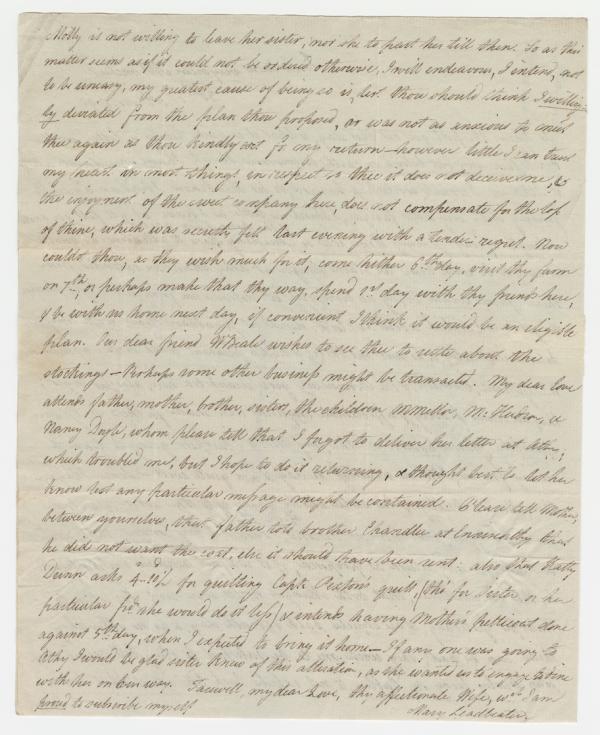 Molly is not willing to leave her sister, nor she to part her till then. So as this
matter seems as if it could not be ordered otherwise, I will endeavour, I intend, not
to be uneasy, my greatest cause of being so is, lest thou should think I willing-
ly deviated from the plan thou proposed, or was not as anxious to meet
thee again as thou kindly art for my return — however little I can trust
my heart in most things, in respect to thee it does not deceive me, &
the enjoyment of the sweet company here, does not compensate for the loss
of thine, which was secretly felt last evening with a tender regret. Now
couldst thou, as they wish much for it, come hither 6th day, visit thy farm
on 7th, or perhaps make that thy way, spend 1st day with thy friends here,
& be with us home next day, if convenient I think it would be an eligible
plan. Our dear friend W Beale wishes to see thee to settle about the
stockings — Perhaps some other business might be transacted. My dear love
attends father, mother, brother, sisters, the children M Mellor, M: Hudson, &
Nancy Doyle, whom please tell that I forgot to deliver her letter at Athy,
which troubled me, but I hope to do it returning, & thought best to let her
know lest any particular message might be contained. Please tell Mother,
between yourselves, that father told brother Chandler at that
he did not want the coat, else it should have been sent: also that Kitty
Dunn asks for quilting Capt. quilt, (tho' for sister or her
particular frds she would do it less) & intends having Mother's petticoat done
against 5th day, when I expected to bring it home — If any one was going to
Athy I would be glad sister knew of this alteration, as she wanted us to engage to dine
with her on our way. Farewell, my dear Love, thy affectionate Wife, wch I am
proud to subscribe myself
Mary Leadbeater